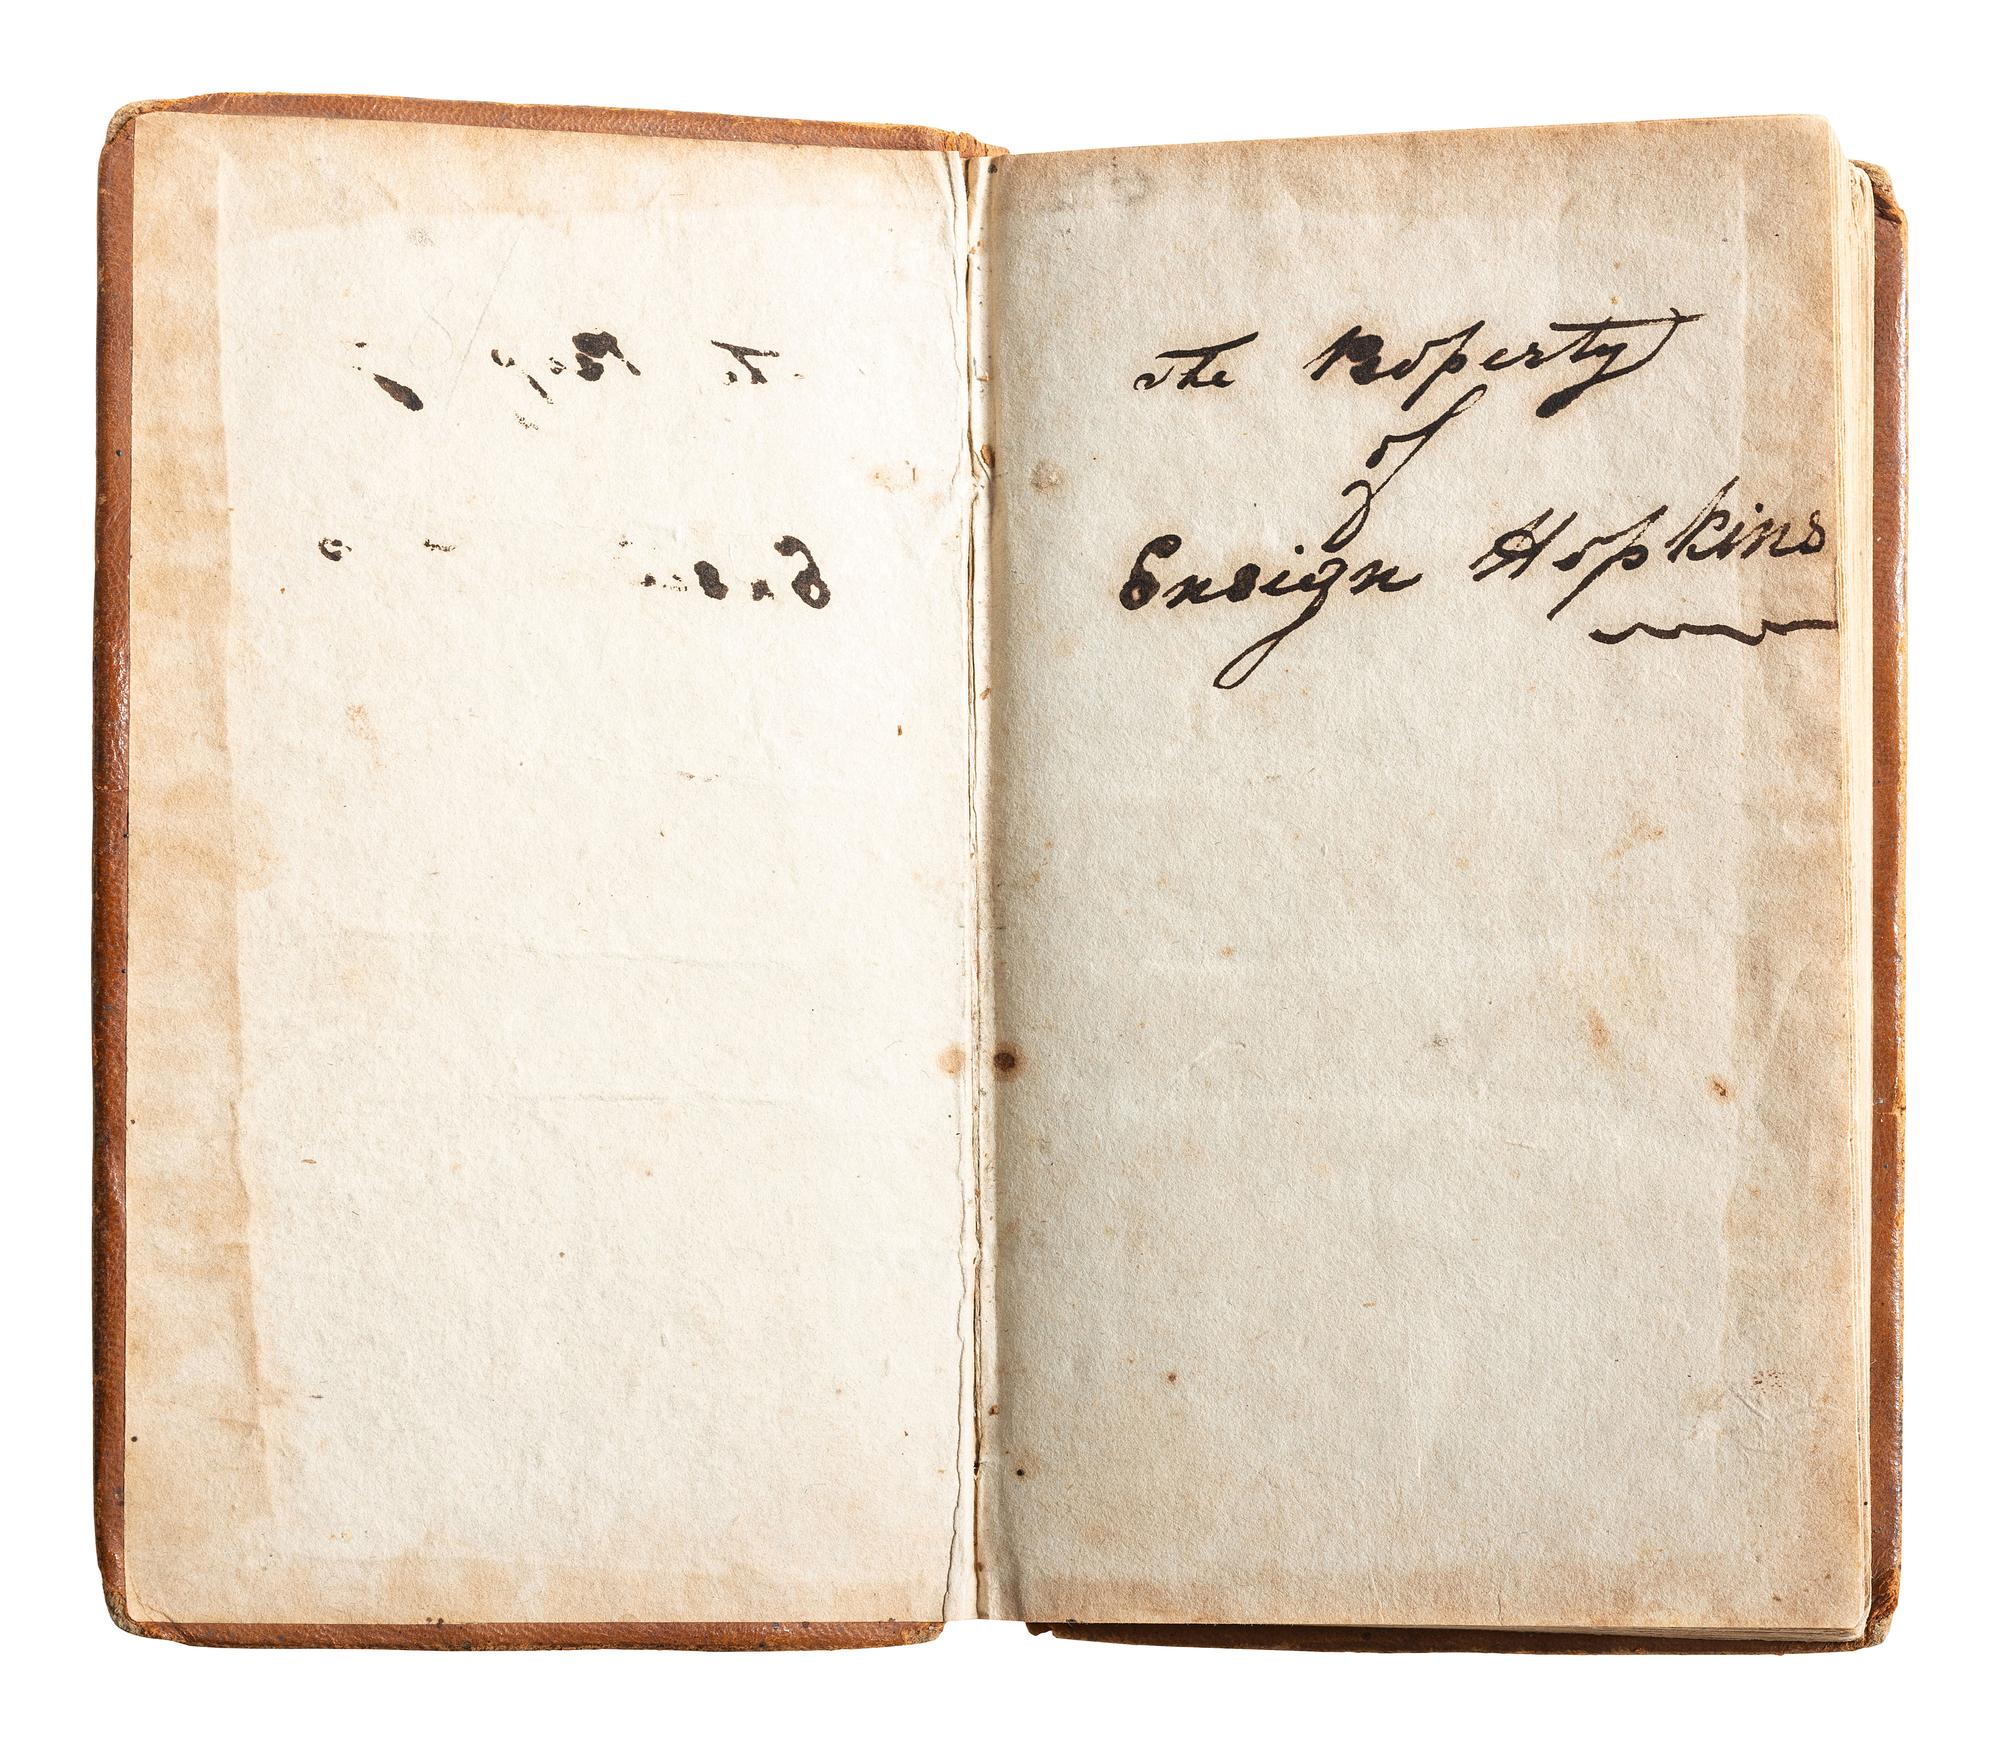 The Property
of
Ensign Hopkins